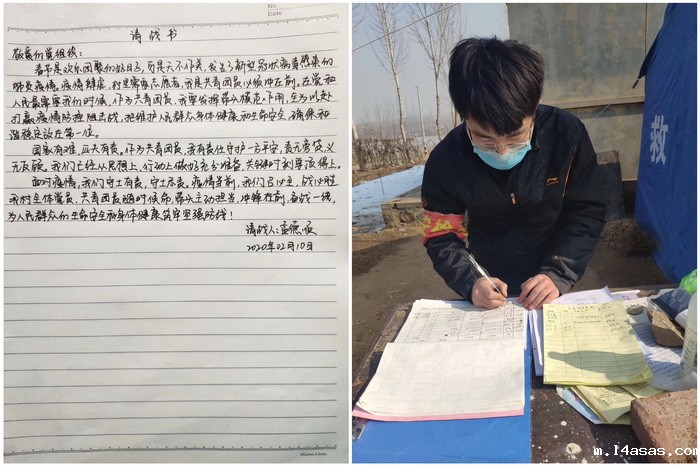 No
Date
请战书
敬爱的党组织：
春节是欢乐团聚的好日子，可是天不作美，发生了新型冠状病毒感染的
肺炎疫情。疫情肆虐，村里需要志愿者，我是共青团员，必须冲在前。在党和
人民最需要我们的时候，作为共青团员，我要发挥带头模范作用，全力以赴
打赢疫情防控阻击战，把维护人民群众身体健康和生命安全，确保和
谐稳定放在第一位。
国家有难，匹夫有责。作为共青团员，我有责任守护一方平安，责无旁贷，义
无反顾。我们已经从思想上，行动上做好充分准备，关键时刻算我得上。
面对疫情，我们守土有责，守土尽责。疫情当前，我们召必至，战必胜
我村全体党员，共青团员随时候命，带头主动担当，冲锋在前，奋战一线，
为人民群众的生命安全和身体健康筑牢坚强防线！
请战人：孟德
2020年02月10日
救
m.14asas.com